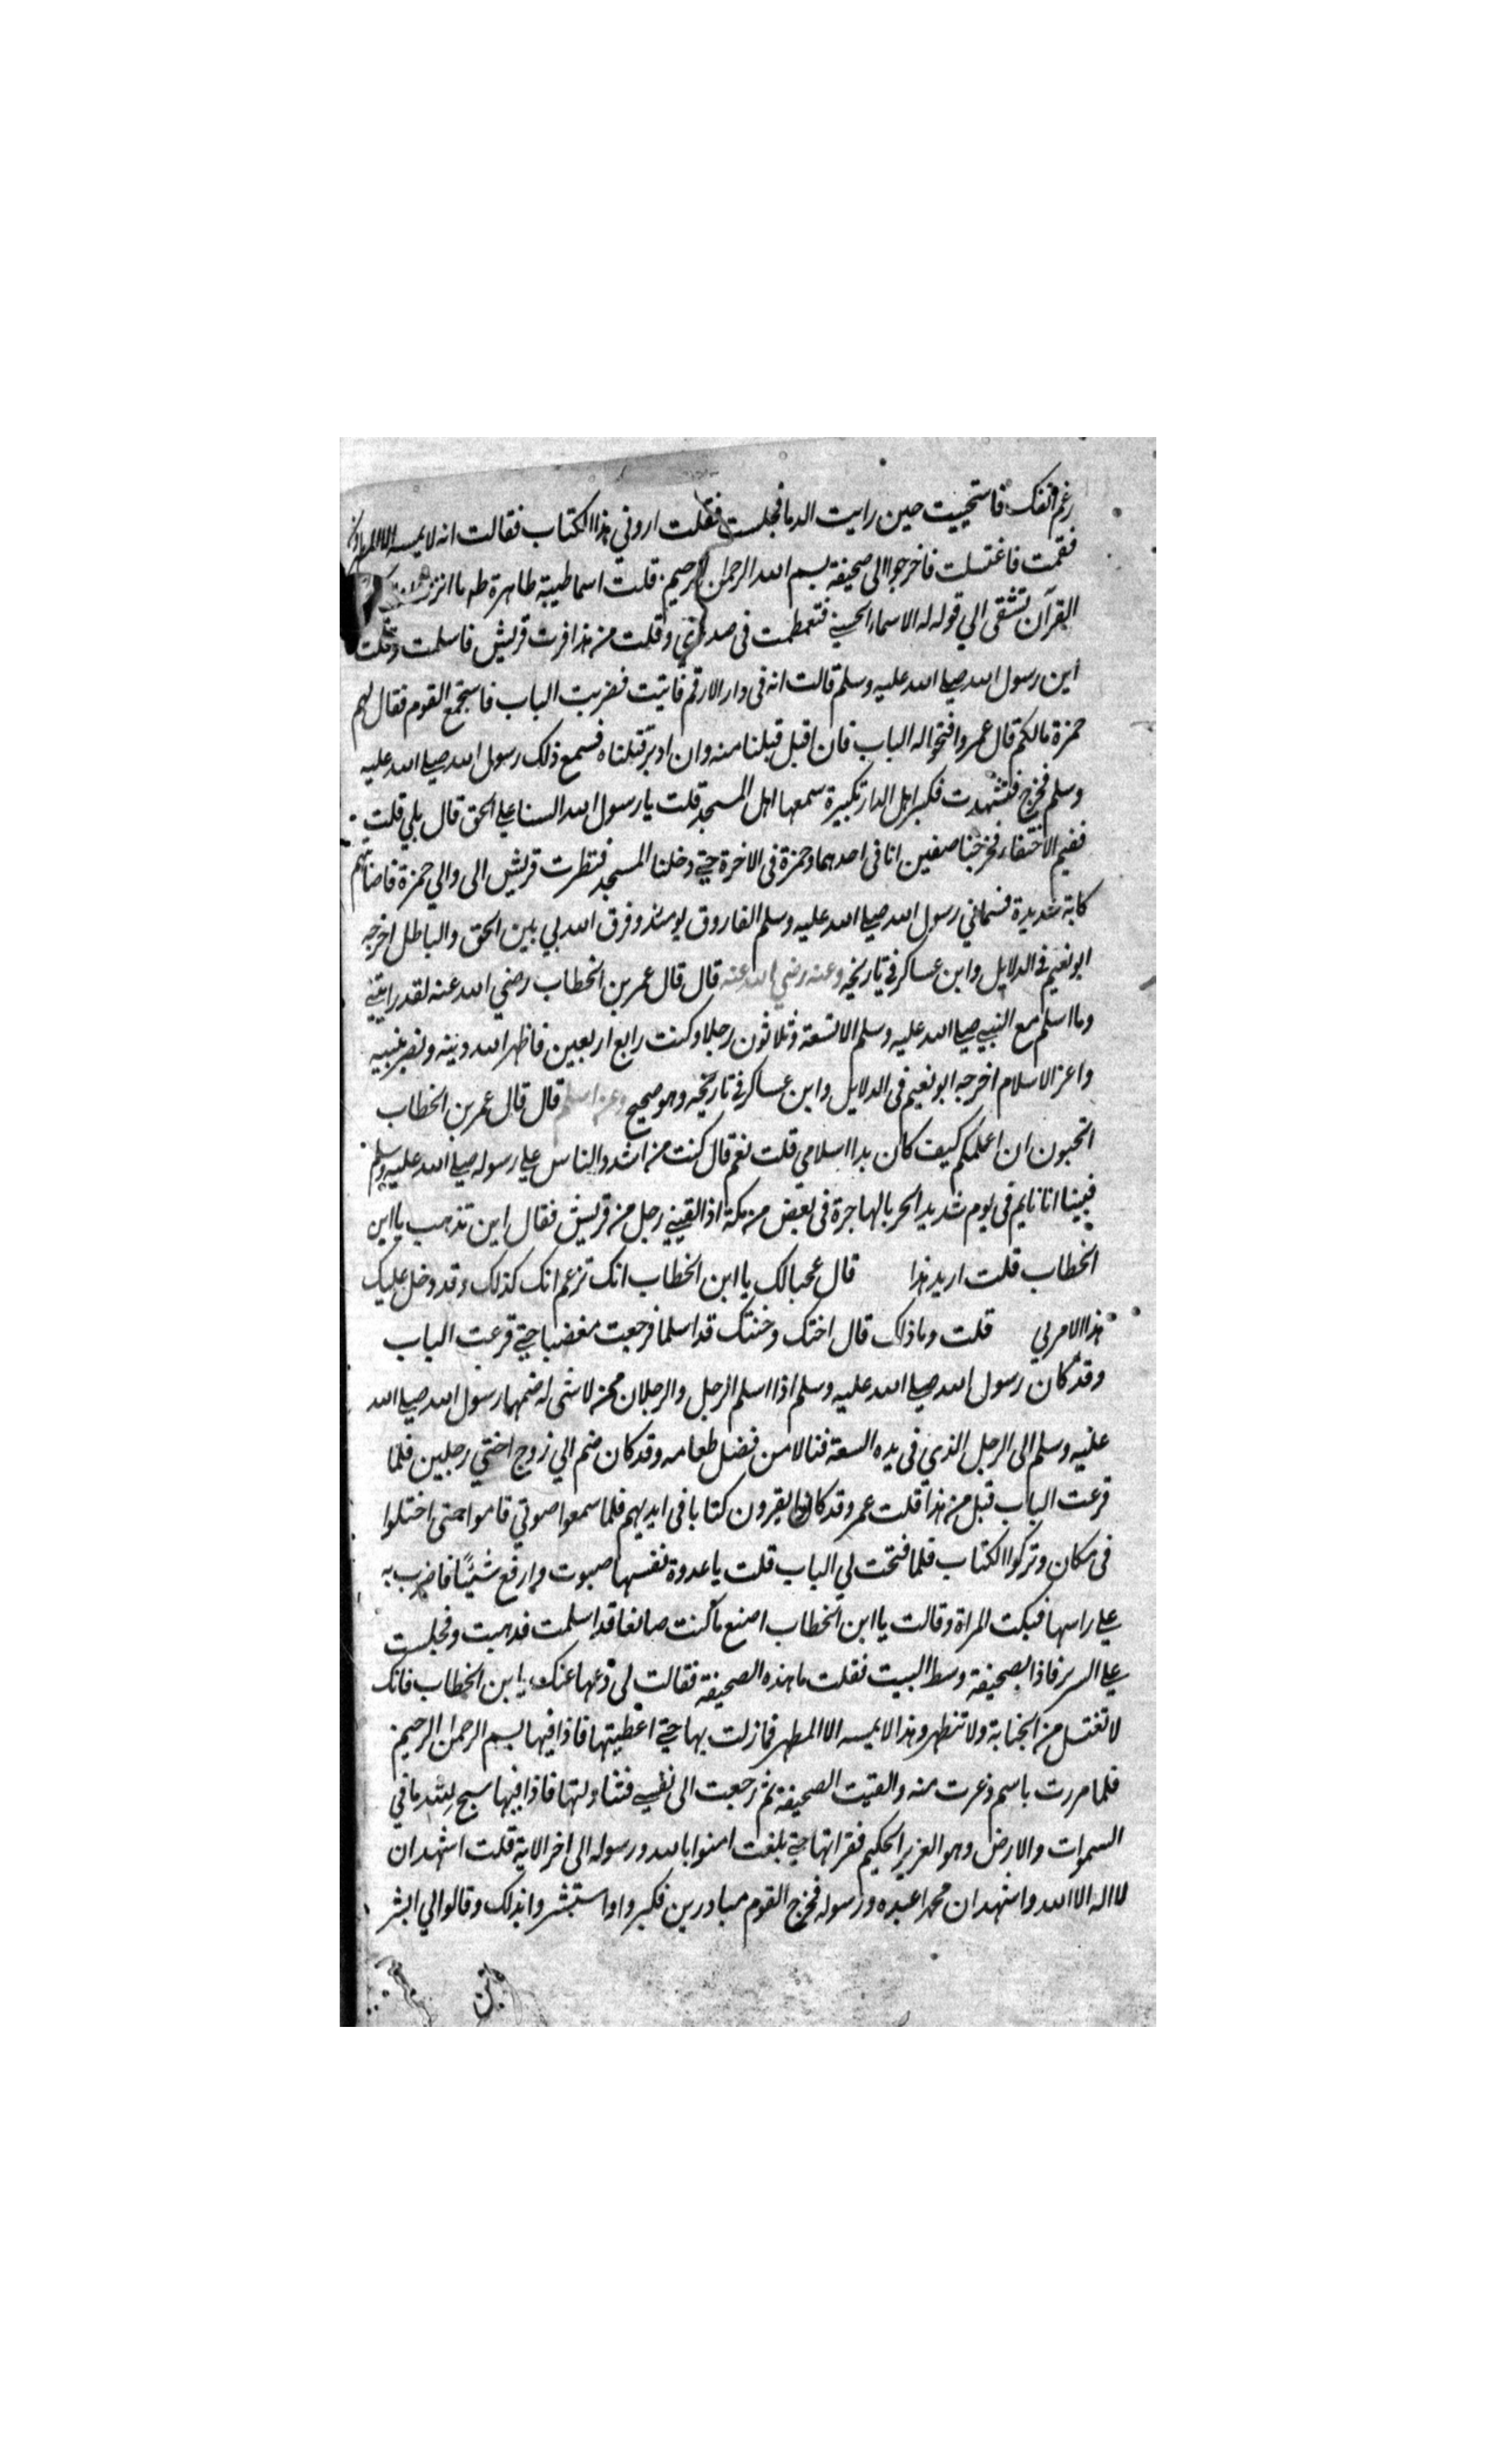 رغم انفك فاستحييت حين رايت الدما فجلست فقلت اروني هذا الكتاب فقالت انه لا يمسه الا المطهرون
فقمت فاغتسلت فاخرجوا الى صحيفة بسم الله الرحمن الرحيم قلت اسما طيبة طاهرة طه ما انزلنا عليك
القرآن تشقى الي قوله له الاسماء الحسنى فتعظمت في صدري وقلت من هذا فرت قريش فاسلمت وقلت
اين رسول الله صلي الله عليه وسلم قالت انه في دار الارقم فاتيت فضربت الباب فاستجمع القوم فقال لهم
حمزة مالكم قال عمر وافتحوا له الباب فان اقبل قبلنا منه وان ادبر قتلناه فسمع ذلك رسول الله صلي الله عليه
وسلم فخرج فتشهدت فكبر اهل الدار تكبيرة سمعها اهل المسجد قلت يا رسول الله السنا علي الحق قال بلي قلت
ففيم الاختفاء فخرجنا صفين انا في احدهما وحمزة في الاخرة حتي دخلنا المسجد فنظرت قريش الى والي حمزة فاصابتهم
كابة شديدة فسماني رسول الله صلي الله عليه وسلم الفاروق يومئذ وفرق الله بي بين الحق والباطل اخرجه
ابو نعيم في الدلايل وابن عساكر في تاريخه وعنه رضي الله عنه قال قال عمر بن الخطاب رضي الله عنه لقد رايتني
وما اسلم مع النبي صلي الله عليه وسلم الا تسعة وثلاثون رجلا وكنت رابع اربعين فاظهر الله دينه ونصر نبيه
واعز الاسلام اخرجه ابو نعيم في الدلايل وابن عساكر في تاريخه وهو صحيح وعن اسلم قال قال عمر بن الخطاب
اتحبون ان اعلمكم كيف كان بدا اسلامي قلت نعم قال كنت من اشد الناس علي رسوله صلي الله عليه وسلم
فبينا انا نايم في يوم شديد الحر بالهاجرة في بعض من مكة اذا لقيني رجل من قريش فقال اين تذهب يا ابن
الخطاب قلت اريد هذا قال عجبا لك يا ابن الخطاب انك تزعم انك كذلك وقد دخل عليك
هذا الامر بي قلت وما ذلك قال اختك وختنك قد اسلما فرجعت مغضبا حتي قرعت الباب
وقد كان رسول الله صلي الله عليه وسلم اذا اسلم الرجل والرجلان ممن لا شى له ضمهما رسول الله صلي الله
عليه وسلم الى الرجل الذي في يده السعة فنالا من فضل طعامه وقد كان ضم الي زوج اختي رجلين فلما
قرعت الباب قيل من هذا قلت عمر وقد كانوا يقرون كتابا في ايديهم فلما سمعوا صوتي قاموا حتى اختلوا
في مكان وتركوا الكتاب فلما فتحت لي الباب قلت يا عدوة نفسها صبوت وارفع شيئًا فاضرب به
علي راسها فبكت المراة وقالت يا ابن الخطاب اصنع ما كنت صانعا قد اسلمت فذهبت وفجلست
علي السرير فاذا بصحيفة وسط البيت فقلت ما هذه الصحيفة فقالت لي دعها عنك يا ابن الخطاب فانك
لا تغتسل من الجنابة ولا تتطهر وهذا لا يمسه الا المطهر فما زلت بها حتي اعطيتها فاذا فيها بسم الرحمن الرحيم
فلما مررت باسم ذعرت منه والقيت الصحيفة ثم رجعت الى نفسي فتناولتها فاذا فيها سبح لله ما في
السموات والارض وهو العزيز الحكيم فقراتها حتي بلغت امنوا بالله ورسوله الى اخر الاية قلت اشهد ان
لا اله الا الله واشهد ان محمدا عبده ورسوله فخرج القوم مبادرين فكبروا واستبشروا بذلك وقالوا لي ابشر